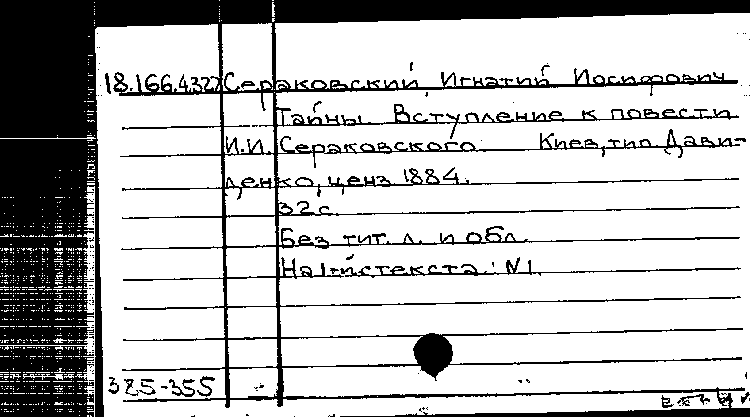 18.166.4.327 Сераковский, Игнатий Иосифович
Тайны. Вступление к повести
И.И. Сераковского. Киев, тип. Дави-
денко, ценз. 1884.
32 с.
Без тит. л. и обл.
На 1-й с текста: N1.
385-355